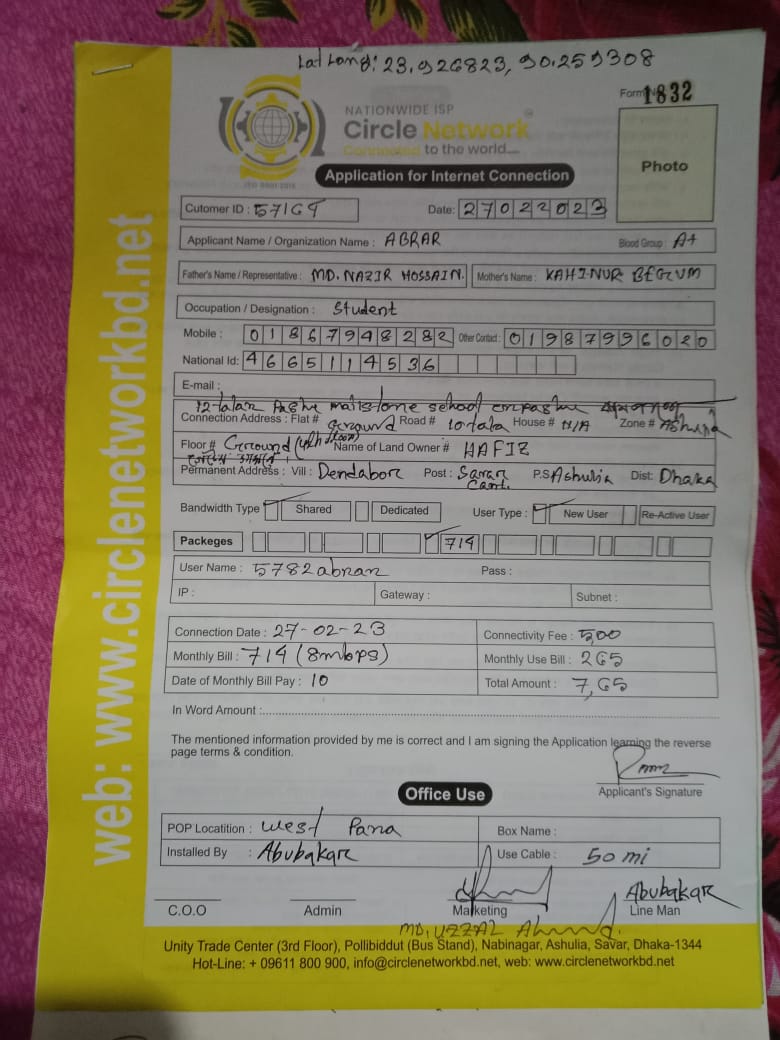 Lat Long: 23.926823, 90.259308
Form No 1832
NATIONWIDE ISP
Circle Network
Connected to the world....
ISO 9001:2015
Photo
Application for Internet Connection
Cutomer ID : 57169 Date: 27022023
Applicant Name / Organization Name : ABRAR Blood Group : A+
Father's Name / Representative : MD. NAZIR HOSSAIN. Mother's Name : KAHINUR BEGUM
Occupation / Designation : Student
Mobile : 01867948282 Other Contact : 01987996020
National Id: 4665114536
E-mail :
12 talar Pashe school
Connection Address : Flat # Ground Road # 10 tala House # N/A Zone # Ashulia
Floor # Ground Name of Land Owner # HAFIZ
Permanent Address : Vill : Dendabor Post : Savar Cant. P.S Ashulia Dist: Dhaka
Bandwidth Type Shared Dedicated User Type : New User Re-Active User
Packeges 714
User Name : 5782abrar Pass :
IP : Gateway : Subnet :
Connection Date : 27-02-23 Connectivity Fee : 500
Monthly Bill : 714 (8mbps) Monthly Use Bill : 265
Date of Monthly Bill Pay : 10 Total Amount : 7,65
In Word Amount :
The mentioned information provided by me is correct and I am signing the Application learning the reverse
page terms & condition.
Applicant's Signature
Office Use
POP Locatition : West Para Box Name :
Installed By : Abubakar Use Cable : 50 mi
Abubakar
C.O.O Admin Marketing Line Man
MD. UZZAL Ahmed.
Unity Trade Center (3rd Floor), Pollibiddut (Bus Stand), Nabinagar, Ashulia, Savar, Dhaka-1344
Hot-Line: + 09611 800 900, info@circlenetworkbd.net, web: www.circlenetworkbd.net
web: www.circlenetworkbd.net